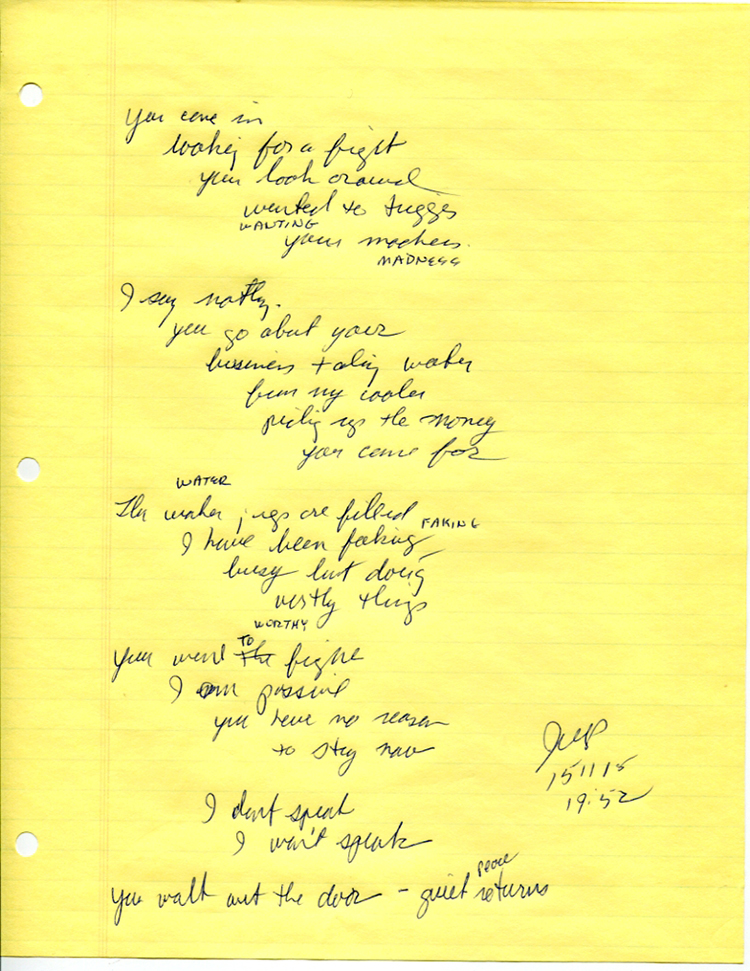 You come in
looking for a fight
you look around
wanted to trigger
WANTING
your madness.
MADNESS
I say nothing.
you go about your
business taking water
from my cooler
picking up the money
you came for
WATER
The water jugs are filled
FAKING
I have been faking
busy but doing
worthy things
WORTHY
TO
You want the fight
I am passive
you have no reason
to stay now
15 11 15
19:52
I don't speak
I won't speak
peace
You walk out the door - quiet returns